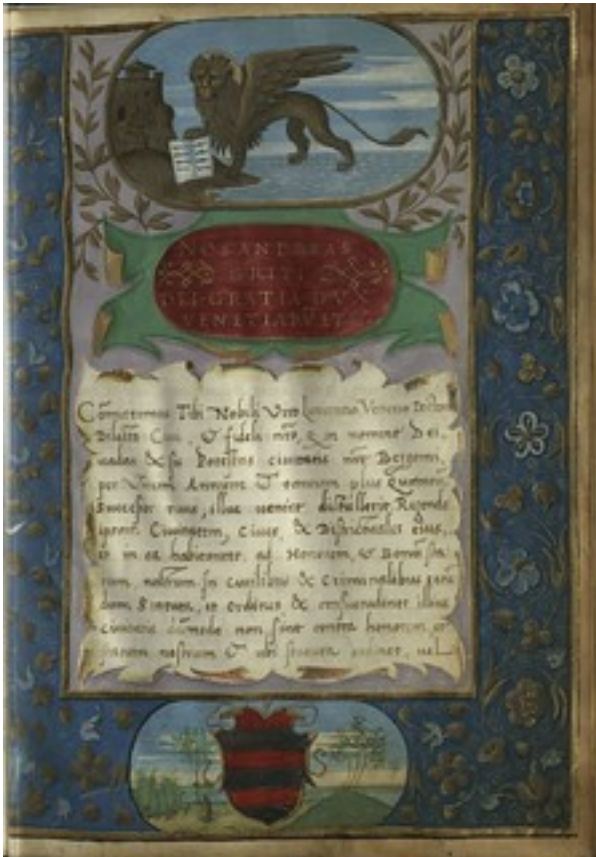 NOS ANDREAS
GRITI
DEI·GRATIA·DV
VENETIARV ET
Cōmittemus Tibi Nobili Viro Laurentio Venerio
Dilecto Civi, & fideli nr̄o, q̄ in nomine Dei,
vadas & sis Potestas civitatis nr̄ę Bergomi,
per Unum Annum & tantum plus quantum
Successor tuus, illuc venire distullerit, Regendo
Civitatem, Cives, & Districtuales eius,
in ea habitantes, ad Honorem, & Bonū
nostrum In Civilibus & Criminalibus
dum Statuta, et ordines & consuetudines illius
civitatis dūmodo non sint contra honorem, et
statum nostrum & ubi statuta, ordines, vel